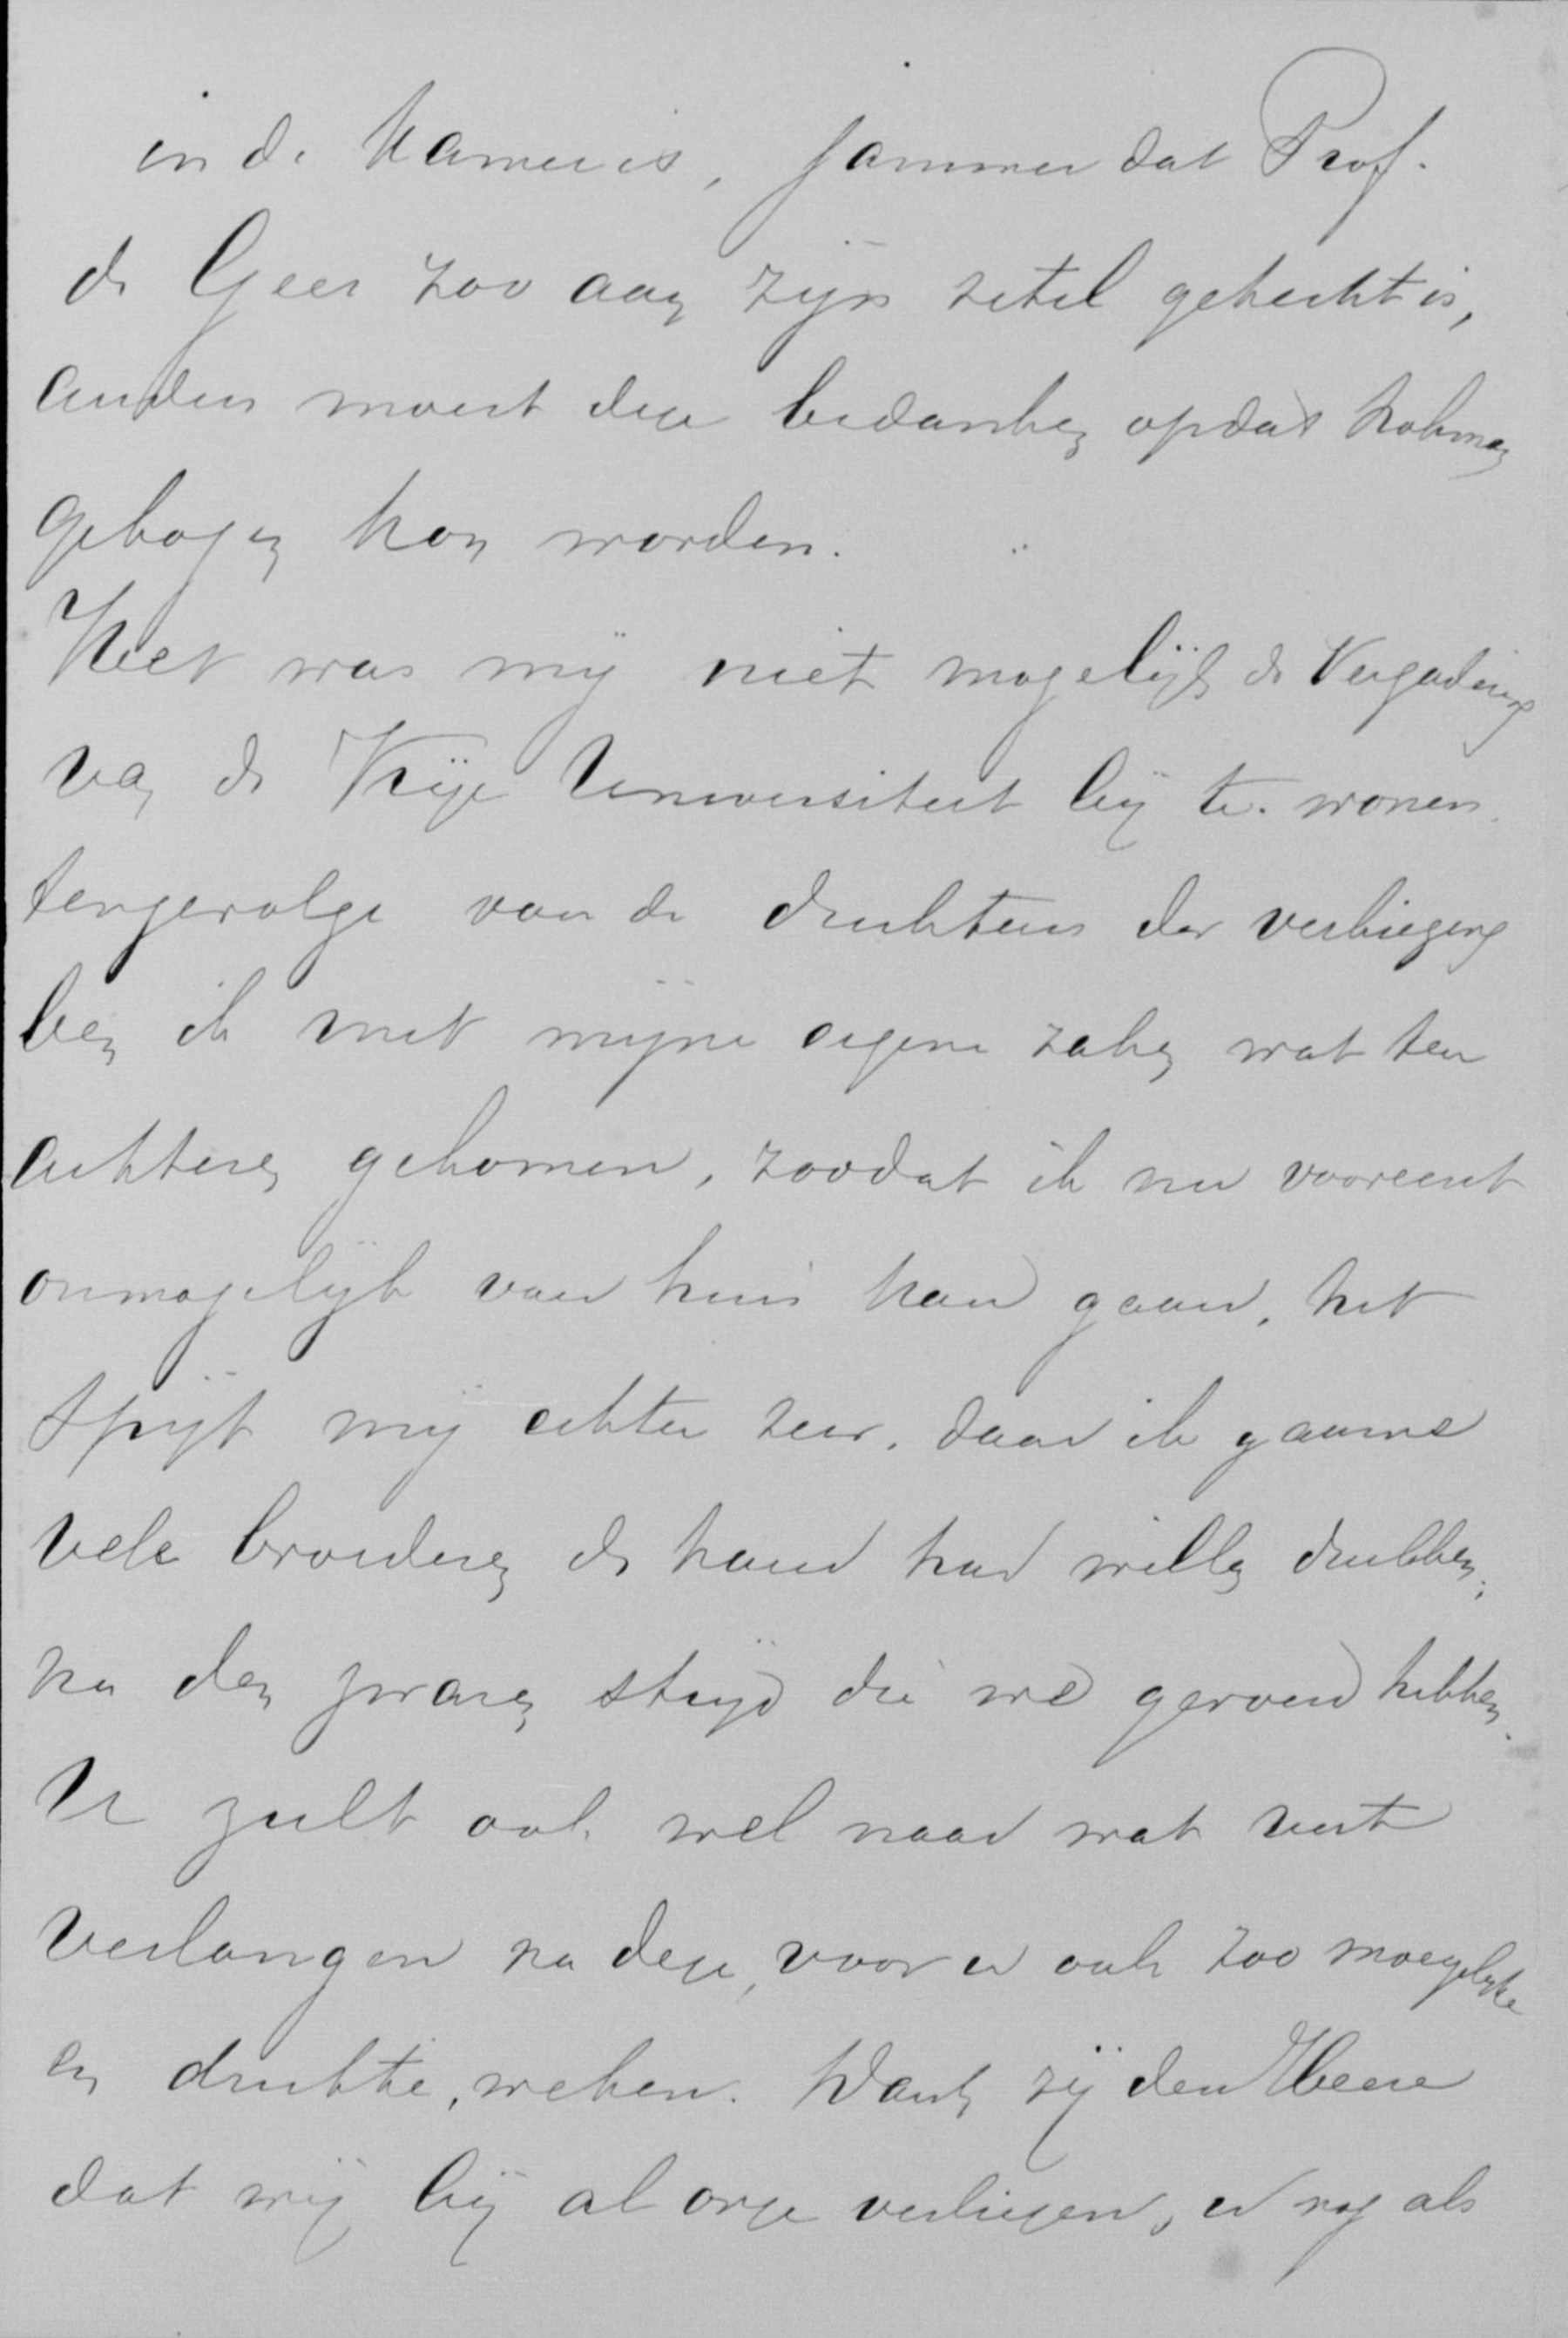 in de Kamer is, jammer dat Prof.
de Geer zoo aan zijn zetel gehecht is,
anders moest deze bedanken opdat Lohman
gekozen kon worden.
Het was mij niet mogelijk de Vergadering
van de Vrije Universiteit bij te wonen.
tengevolge van de drukten der verkiezing
ben ik met mijne eigene zaken wat ten
achteren gekomen, zoodat ik nu vooreerst
onmogelijk van huis kan gaan, het
spijt mij echter zeer, daar ik gaarne
vele broederen de hand had willen drukken,
na den zwaren strijd die we gevoerd hebben.
U zult ook wel naar wat rust
verlangen na deze, voor u ook zoo moeyelijke
en drukke, weken. Dank zij den Heere
dat wij bij al onze verliezen, u nog als